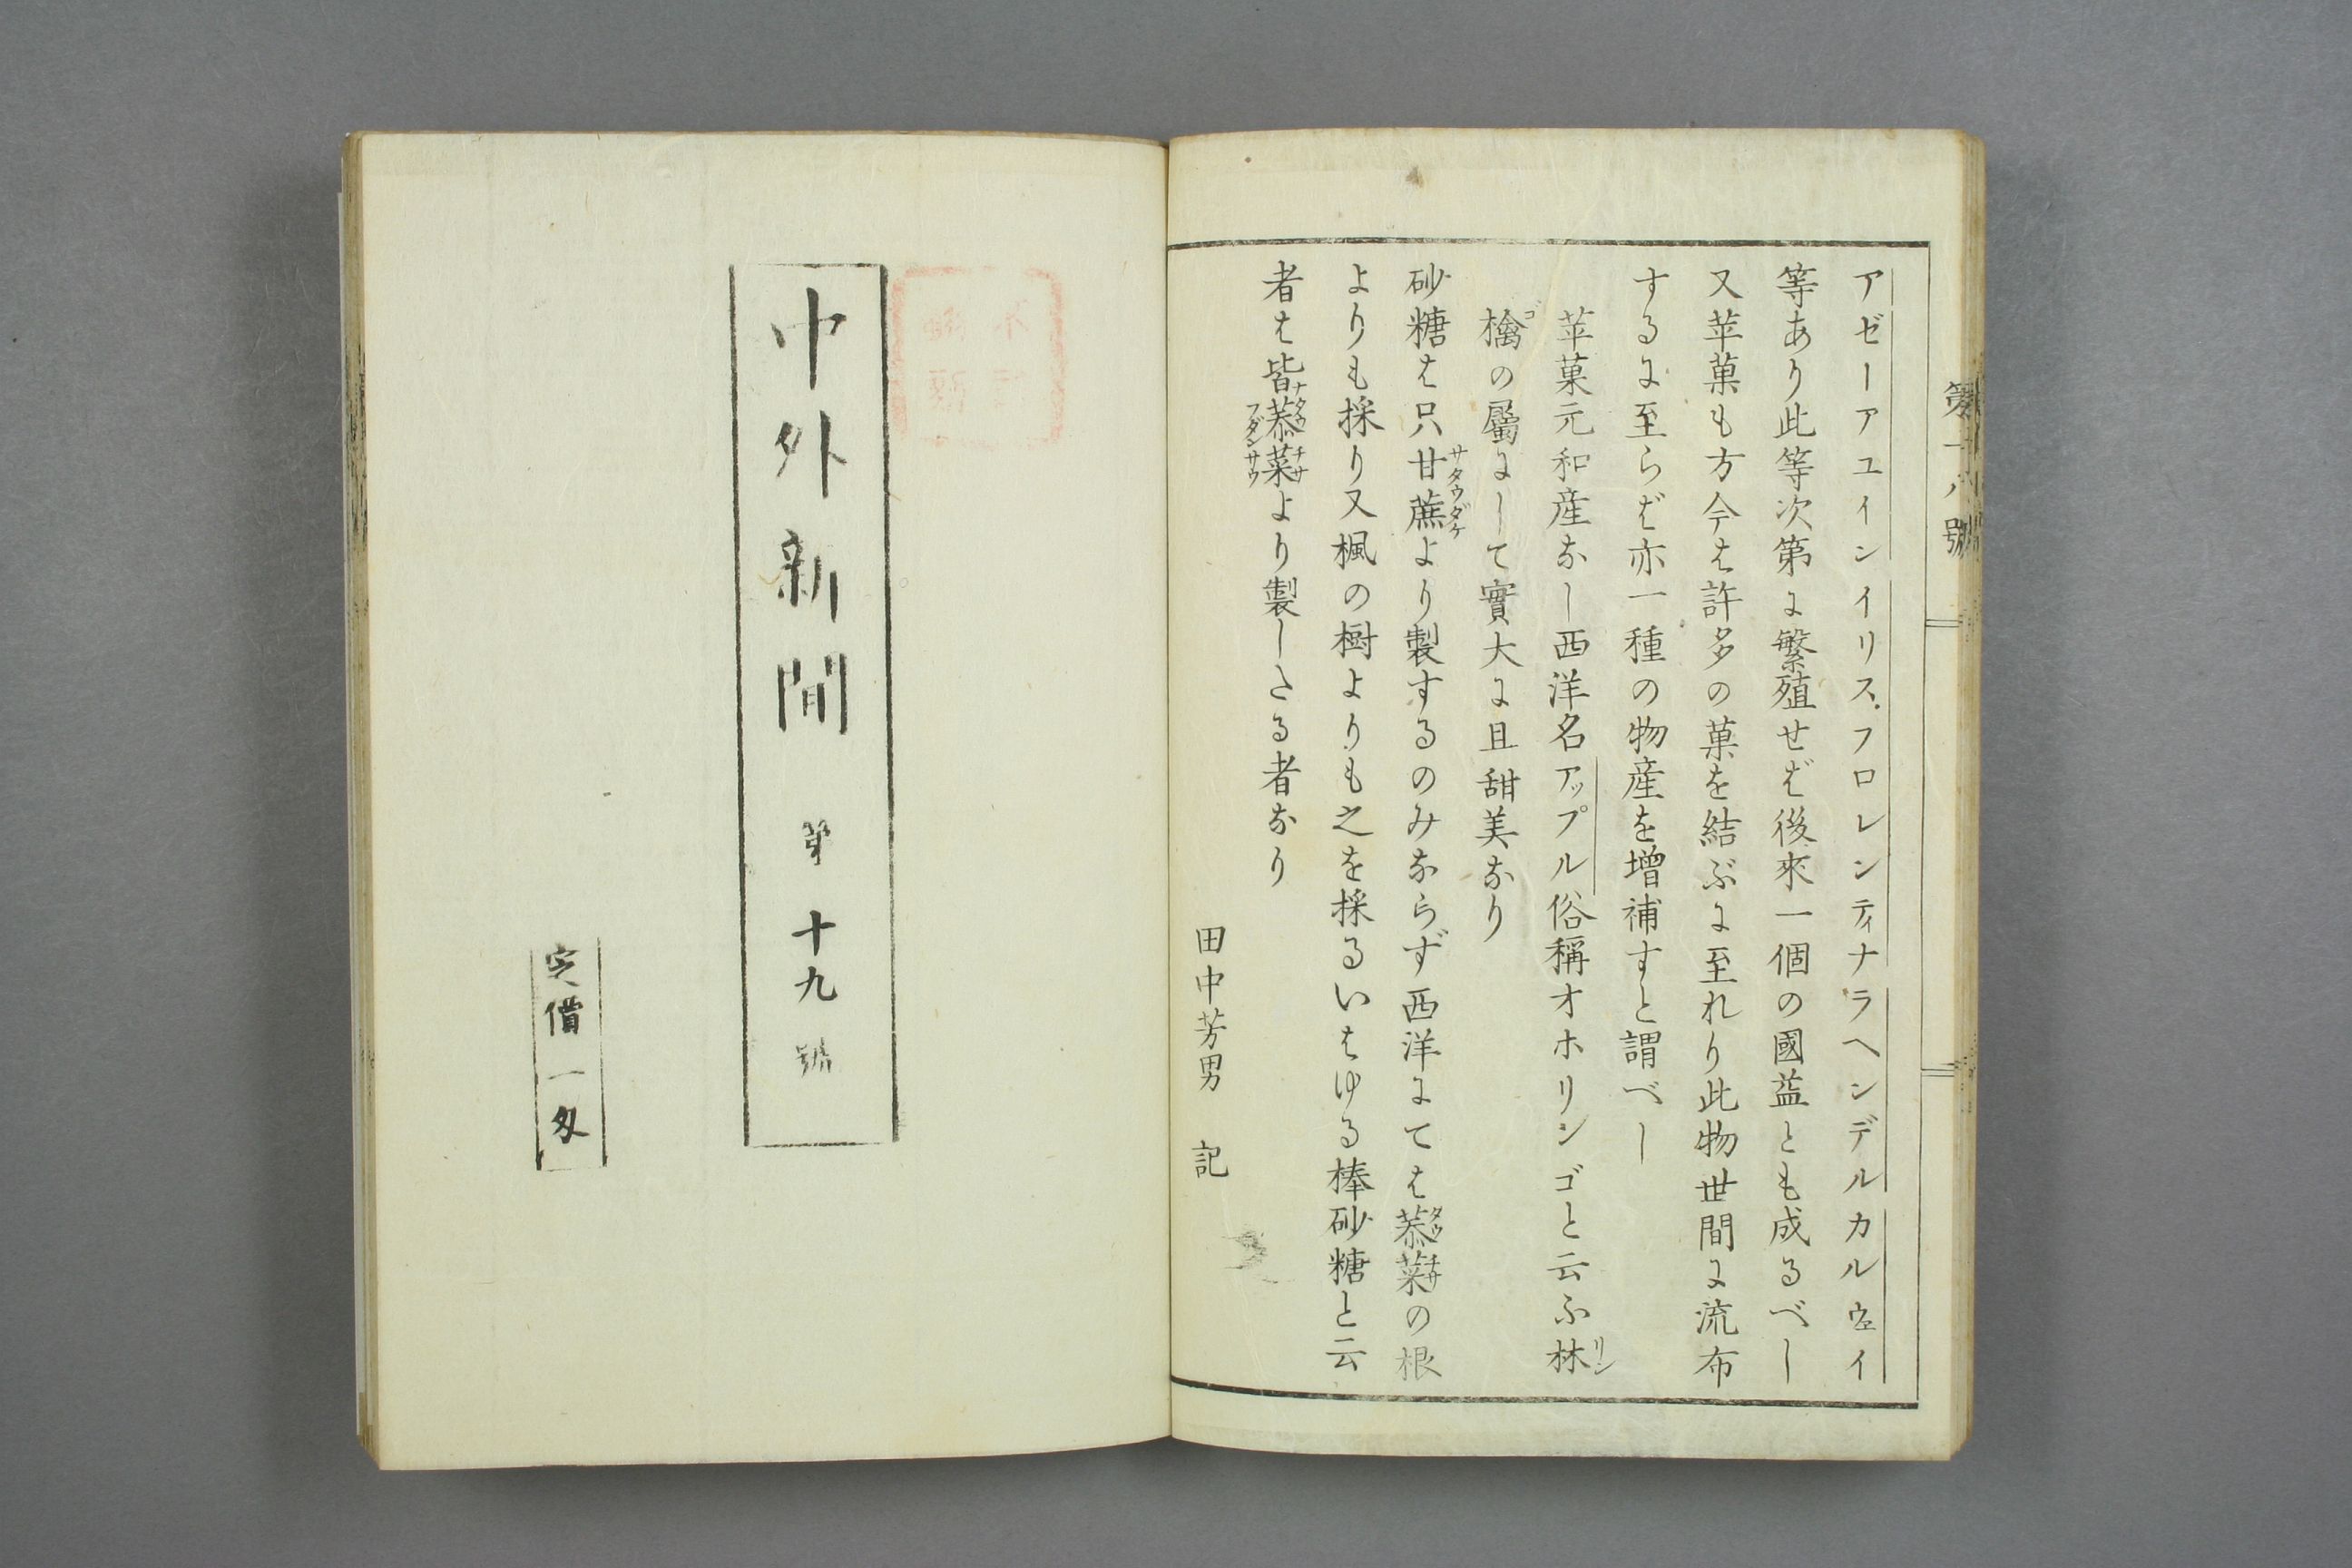 第十八號
アゼーアユインイリス.フロレンティナラヘンデルカルウェイ
等あり此等次第に繁殖せば後來一個の國益とも成るべし
又苹菓も方今は許多の菓を結ぶに至れり此物世間に流布
するに至らば亦一種の物産を增補すと謂べし
苹菓元和産なし西洋名アップル俗稱オホリンゴと云ふ林リン
檎ゴの屬にして實大に且甜美なり
砂糖は只甘蔗サタウダケより製するのみならず西洋にては菾菜タウチサの根
よりも採り又楓の樹よりも之を採るいはゆる棒砂糖と云
者は皆菾菜フダンサウより製したる者なり
田中芳男 記
中外新聞 第十九號
定價一匁